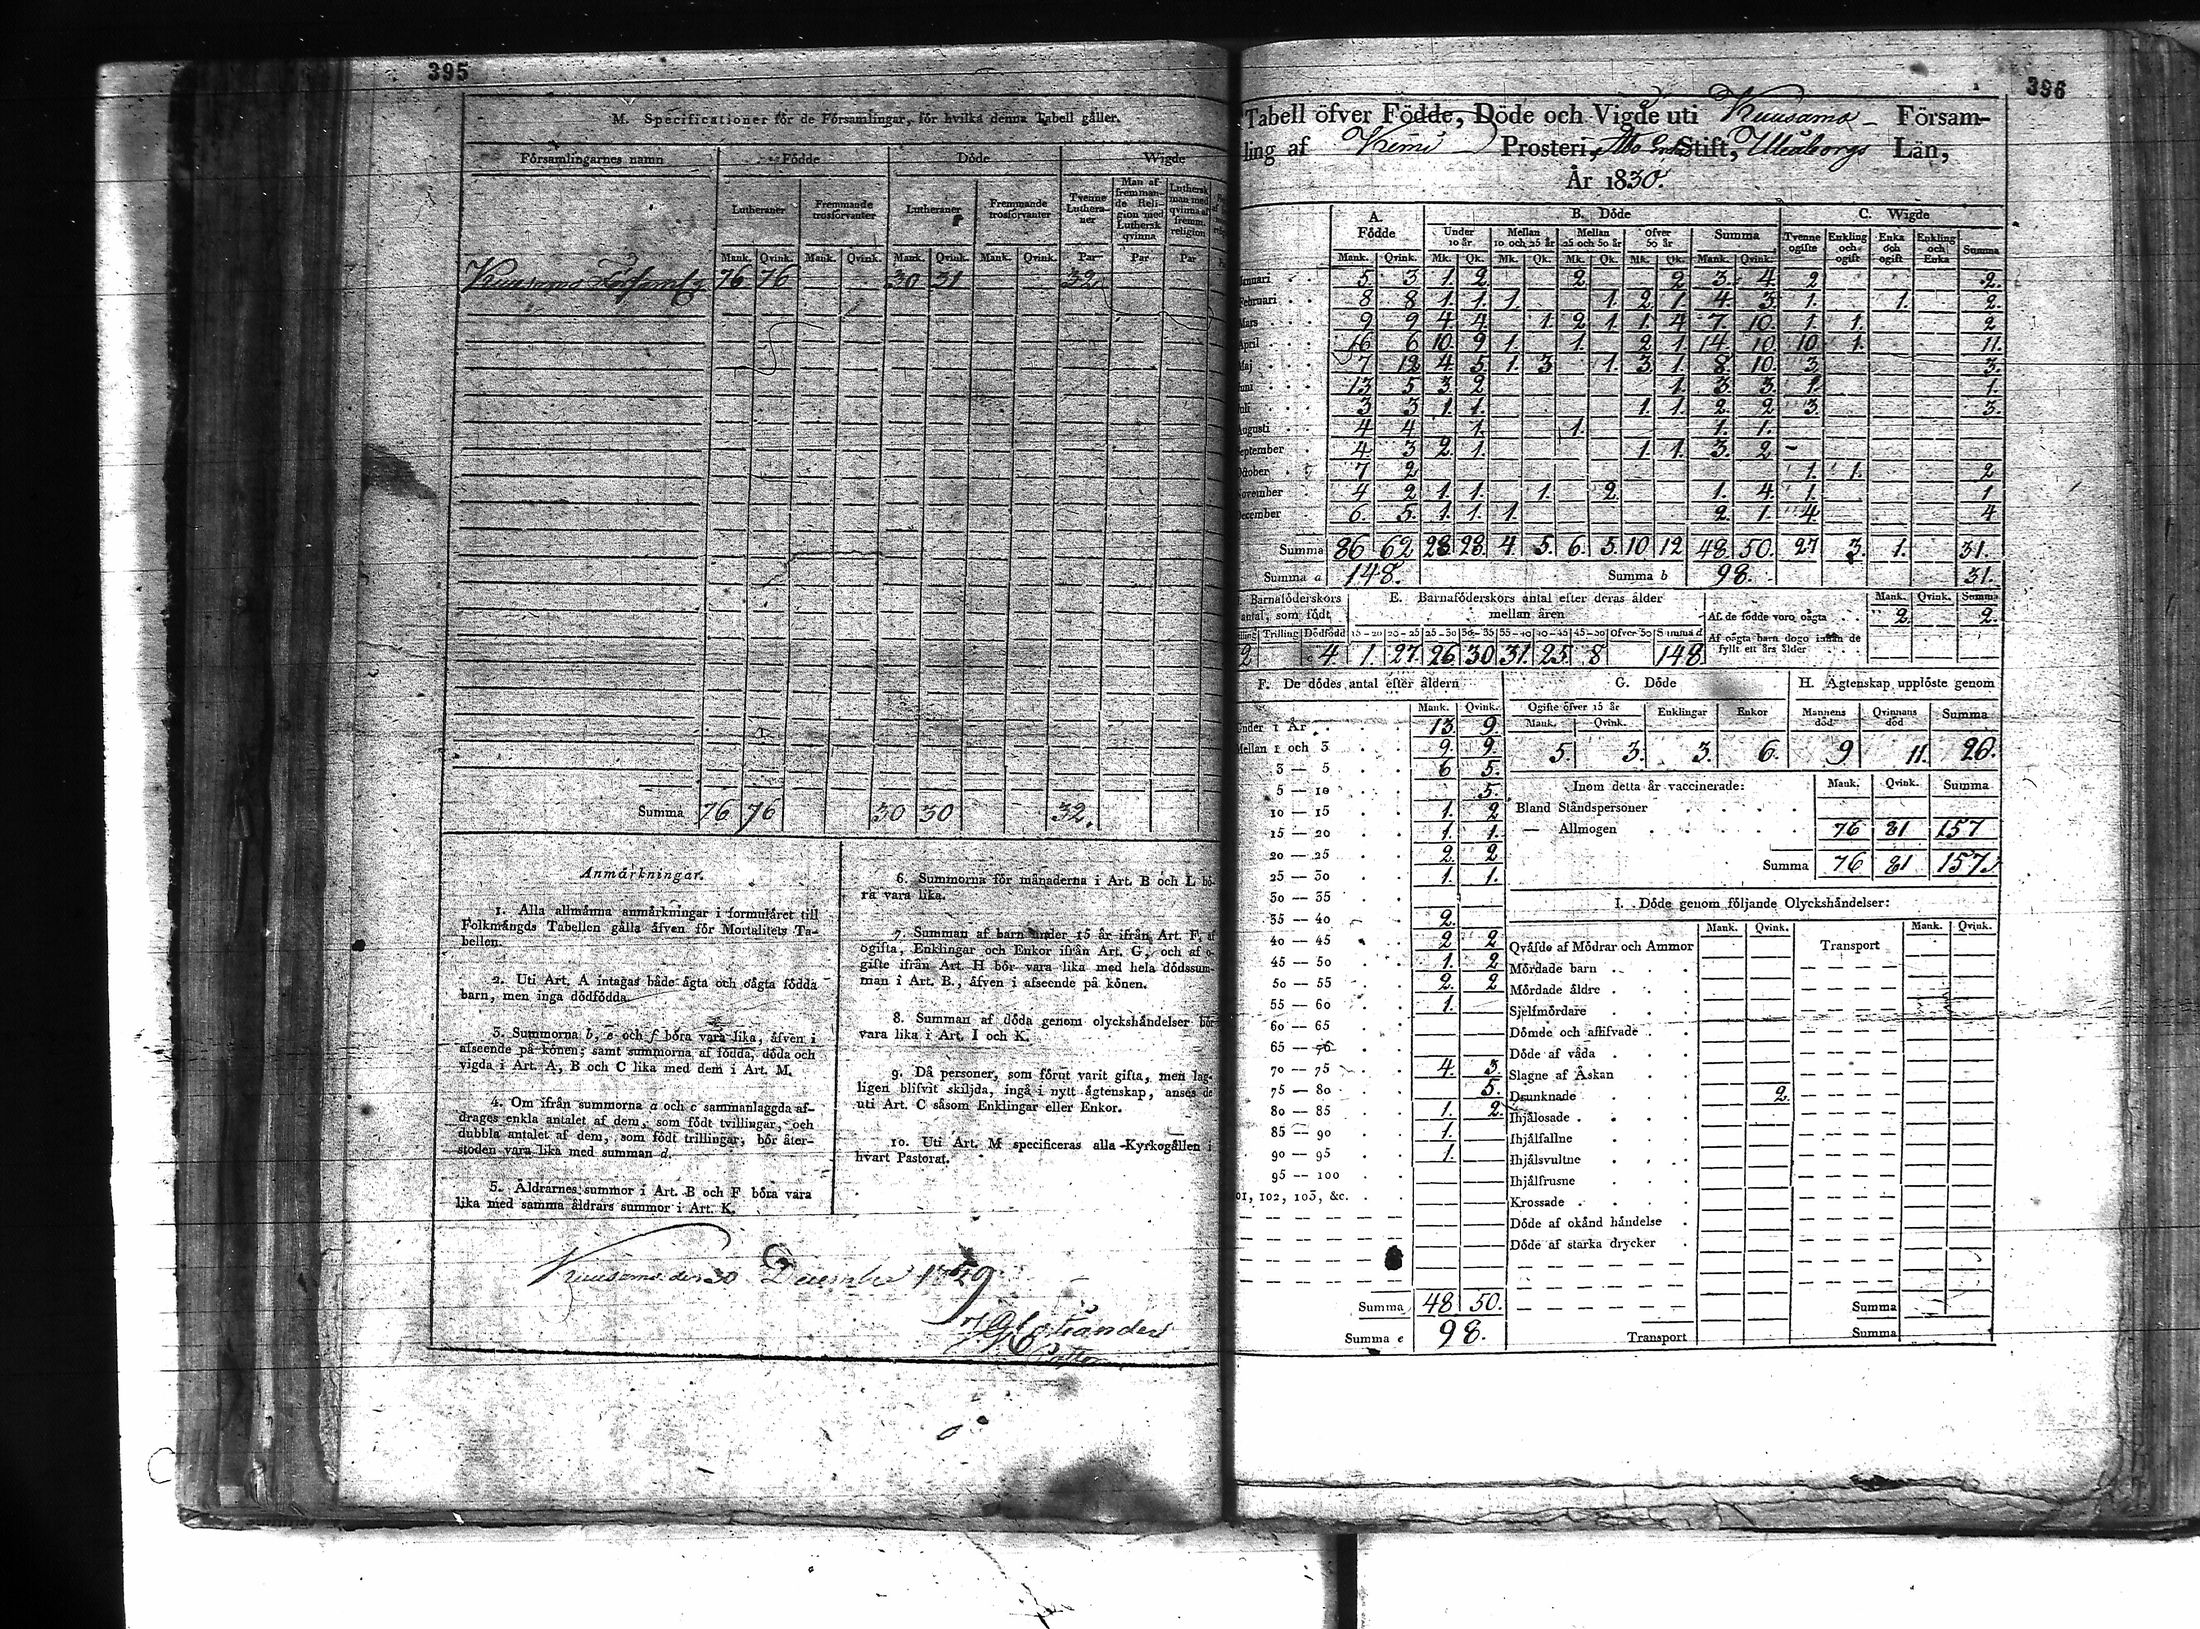 395
M. Specificationer för de Församlingar, för hvilka denna Tabell gäller.
Församlingarnes namn Födde Döde Wigde
Lutheraner Fremmande trosförvanter Lutheraner Fremmande trosförvanter Tvenne Lutheraner Man af fremmande Religion med Luthersk qvinna Luthersk man med qvinna af fremm. religion
Mank. Qvink. Mank. Qvink. Mank. Qvink. Mank. Qvink. Par Par Par
Kuusamo 76 76 30 31 32.
Summa 76 76 30 30 32.
Anmärkningar.
1. Alla allmänna anmärkningar i formuläret till
Folkmängds Tabellen gälla äfven för Mortalitets Ta-
bellen.
2. Uti Art. A intagas både ägta och oägta födda
barn, men inga dödfödda.
3. Summorna b, e och f böra vara lika, äfven i
afseende på könen; samt summorna af födda, döda och
vigda i Art. A, B och C lika med dem i Art. M.
4. Om ifrån summorna a och c sammanlaggda af-
drages enkla antalet af dem, som födt tvillingar, och
dubbla antalet af dem, som födt trillingar, bör åter-
stoden vara lika med summan d.
5. Åldrarnes summor i Art. B och F böra vara
lika med samma åldrars summor i Art. K.
6. Summorna för månaderna i Art. B och L bö-
ra vara lika.
7. Summan af barn under 15 år ifrån Art. F, af
ogifta, Enklingar och Enkor ifrån Art. G, och af o-
gifte ifrån Art. H bör vara lika med hela dödssum-
man i Art. B., äfven i afseende på könen.
8. Summan af döda genom olyckshändelser bör
vara lika i Art. I och K.
9. Då personer, som förut varit gifta, men lag-
ligen blifvit skiljda, ingå i nytt ägtenskap, anses de
uti Art. C såsom Enklingar eller Enkor.
10. Uti Art. M specificeras alla Kyrkogällen i
hvart Pastorat.
Kuusamo den 30 December
396
Tabell öfver Födde, Döde och Vigde uti Kuusamo Försam-
ling af Kemi Prosteri, Åbo Stift, Uleåborgs Län,
År 1830.
A. Födde B. Döde C. Wigde
Under 10 år Mellan 10 och 25 år Mellan 25 och 50 år Öfver 50 år Summa Tvenne ogifte Enkling och ogift Enka och ogift Enkling och Enka Summa
Mank. Qvink. Mk. Qk. Mk. Qk. Mk. Qk. Mk. Qk. Mank. Qvink.
Januari 5 3 1. 2 2 2 3 4 2 2.
Februari 8 8 1. 1. 1. 1. 2 1. 4 3. 1. 1. 2
Mars 9 9 4 4 1. 2 1. 1. 4 7. 10. 1. 1. 2
April 16 6 10 9 1. 1. 2 1 14 10 10 1. 11.
Maj 7 12 4. 5 1. 3 1. 3 1. 8. 10. 3. 3.
Juni 13 5 3 2 1. 3 3 1. 1.
Juli 3 3 1. 1. 1. 1. 2 2 3. 3.
Augusti 4 4 1. 1. 1. 1.
September 4 3 2 1. 1. 1. 3. 2 -
October 7 2 1. 1. 2
November 4 2 1. 1. 1. 2 1. 4. 1. 1
December 6. 5. 1. 1. 1. 2 1. 4 4
Summa 86 62 28 28 4. 5. 6. 5. 10 12 48 50. 27 3. 1. 31.
Summa a 148. Summa b 98. 31.
Barnaföderskors antal, som födt E. Barnaföderskors antal efter deras ålder mellan åren Mank. Qvink. Summa
Af de födde voro oägta 2. 2.
Trilling Dödfödd 15-20 20-25 25-30 30-35 35-40 40-45 45-50 Öfver 50 Summa d
Af oägta barn dogo innan de fyllt ett års ålder
2 4. 1. 27. 26. 30 31. 25. 8 148.
F. De dödes antal efter åldern
Mank. Qvink.
Under 1 År 13. 9.
Mellan 1 och 3 9. 9.
3 — 5 6 5.
5 — 10 5.
10 — 15 1. 2
15 — 20 1. 1.
20 — 25 2 2
25 — 30 1. 1.
30 — 35
35 — 40 2.
40 — 45 2 2
45 — 50 1. 2
50 — 55 2. 2
55 — 60 1.
60 — 65
65 — 70
70 — 75 4. 3.
75 — 80 5.
80 — 85 1. 2.
85 — 90 1.
90 — 95 1.
95 — 100
101, 102, 103, &c.
Summa 48 50.
Summa e 98.
G. Döde H. Ägtenskap upplöste genom
Ogifte öfver 15 år Enklingar Enkor Mannens död Qvinnans död Summa
Mank. Qvink.
5. 3. 3. 6. 9 11. 20.
Inom detta år vaccinerade: Mank. Qvink. Summa
Bland Ståndspersoner
— Allmogen 76 81 157
Summa 76 81 157.
I. Döde genom följande Olyckshändelser:
Mank. Qvink. Mank. Qvink.
Qväfde af Mödrar och Ammor Transport
Mördade barn
Mördade äldre
Sjelfmördare
Dömde och aflifvade
Döde af våda
Slagne af Åskan
Drunknade 2.
Ihjälosade
Ihjälfallne
Ihjälsvultne
Ihjälfrusne
Krossade
Döde af okänd händelse
Döde af starka drycker
Summa
Transport Summa